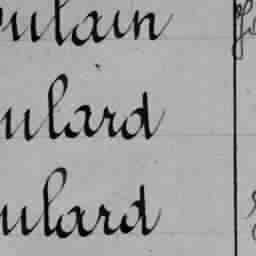 oulain
ulard
oulard